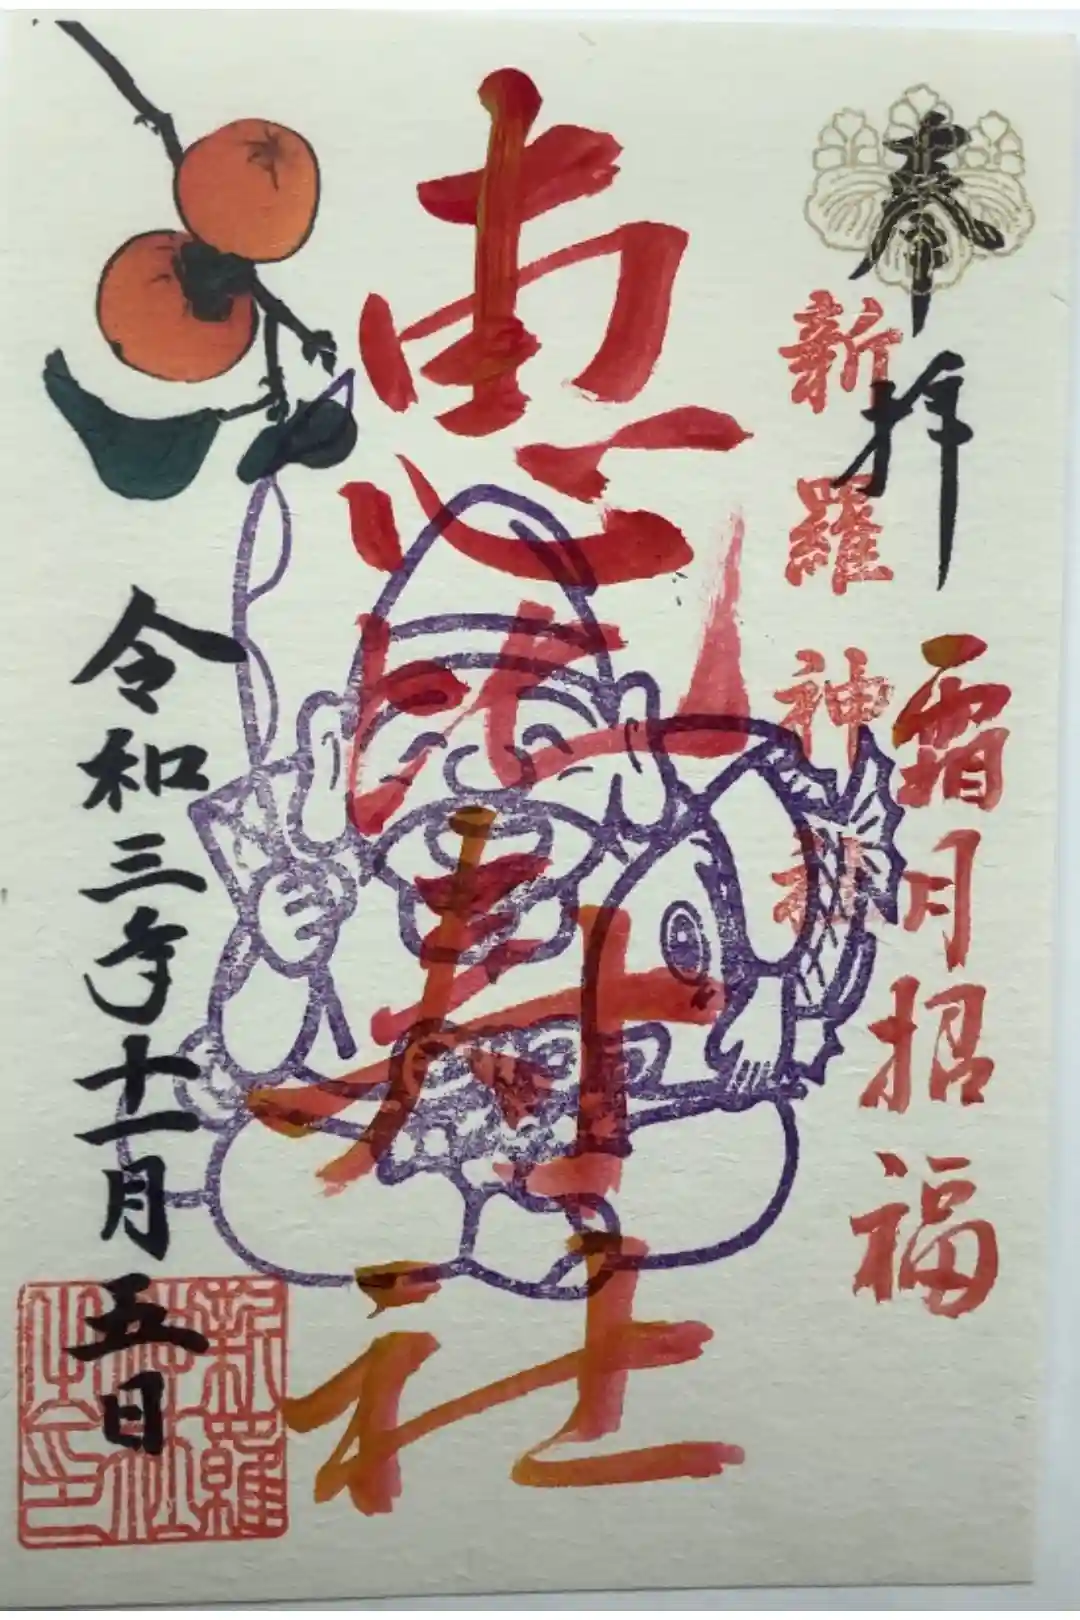 奉拝
霜月招福
新羅神社
恵比寿社
令和三年十一月五日
新羅
神社
之印